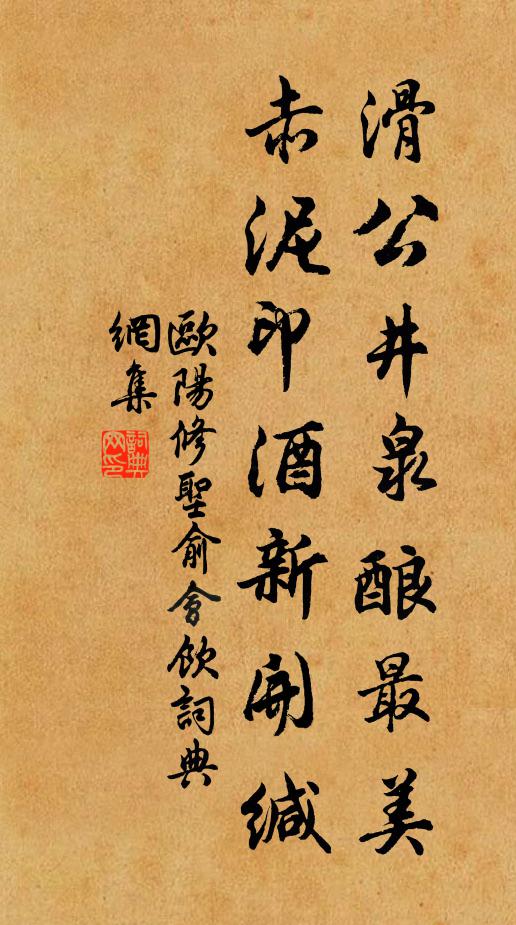 滑公井泉酿最美
赤泥印酒新開缄
歐陽修聖俞會飲詞典
網集
詞典
网印